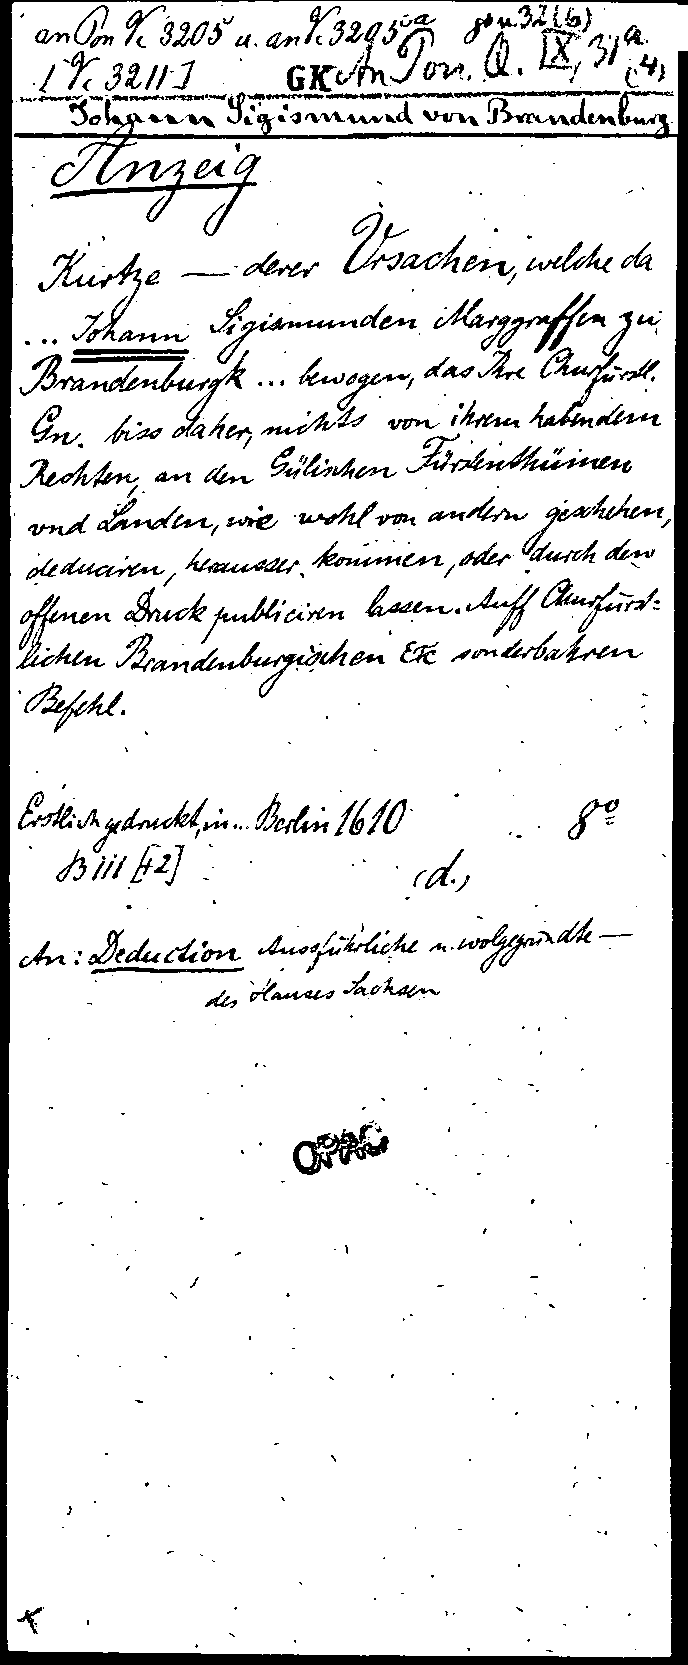 an Pon Vc 3205 u. an Vc 3205ca
[Vc 3211] GK An Pon. Q. IX, 31a (4)
32 (6)
Johann Sigismund von Brandenburg
Anzeig
Kurtze — derer Vrsachen, welche da
... Johann Sigismunden Marggraffen zu
Brandenburgk ... bewogen, das Ihre Churfürstl.
Gn. biss daher, nichts von ihrem habendem
Rechten, an den Gülischen Fürstenthümen
vnd Landen, wie wohl von andern geschehen,
deduciren, herausser kommen, oder durch den
offenen Druck publiciren lassen. Auff Churfürst=
lichen Brandenburgischen Etc sonderbahren
Befehl.
Erstlich gedruckt, in ... Berlin 1610 8º
B iii [+2]
(d.)
An: Deduction Aussführliche u. wolgegründte —
des Hauses Sachsen
OPAC